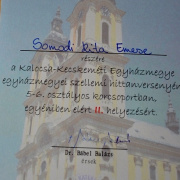 Somodi Rita Emese
részére
a Kalocsa-Kecskeméti Egyházmegye
egyházmegyei szellemi hittanversenyén
5-6. osztályos korcsoportban,
egyéniben elért II. helyezésért.
Dr. Bábel Balázs
érsek